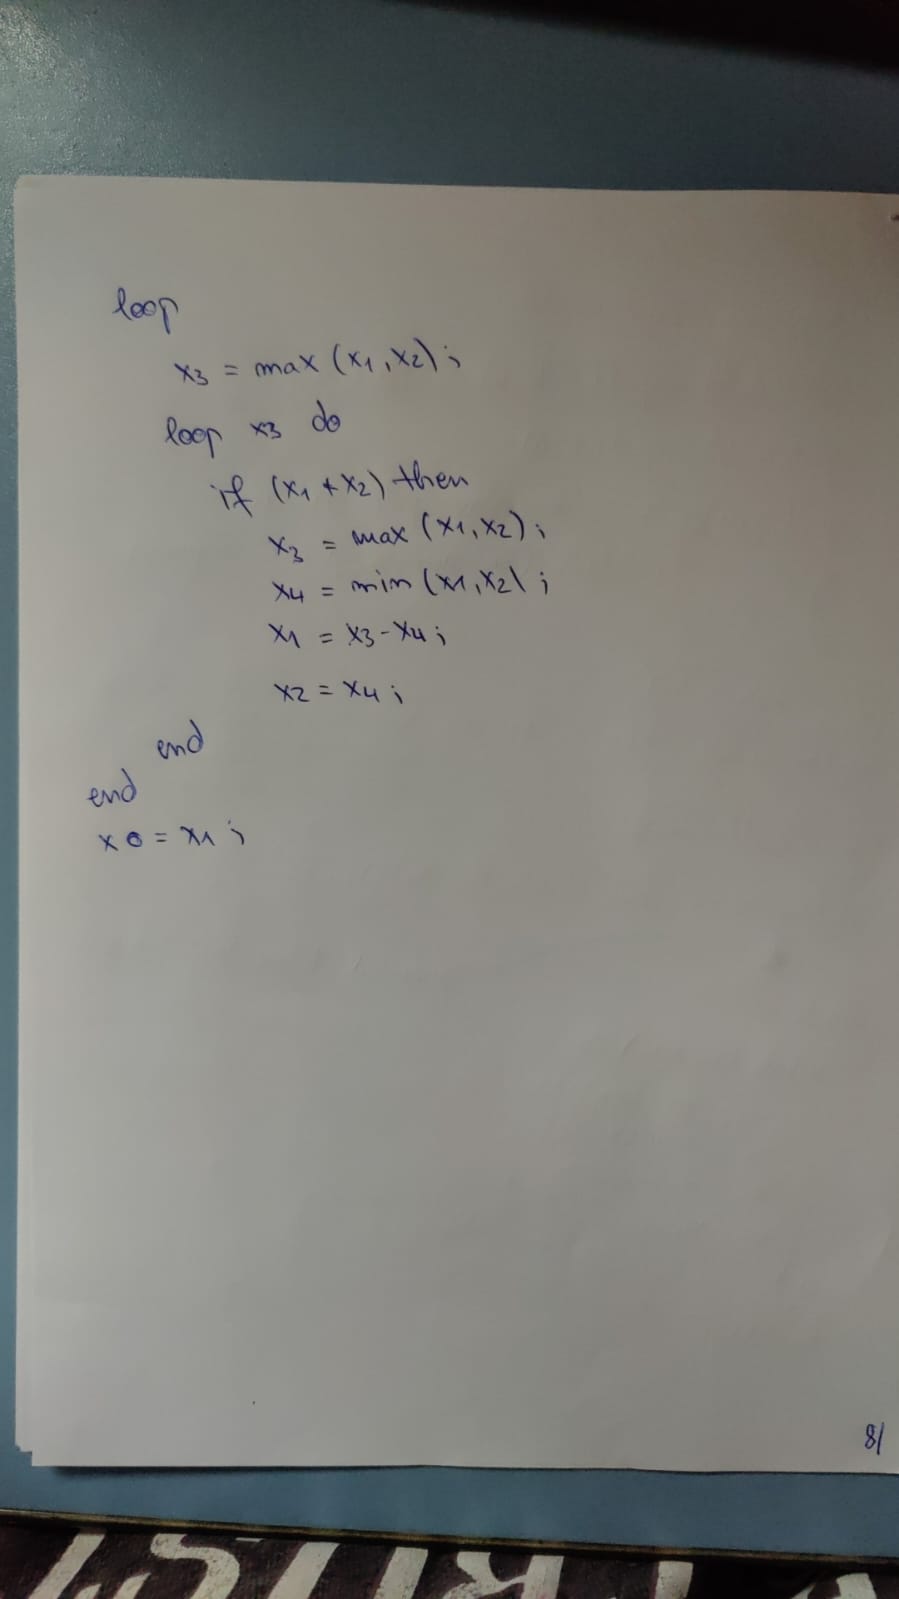 loop
x3 = max (x1, x2) ;
loop x3 do
if (x1 + x2) then
x3 = max (x1, x2) ;
x4 = min (x1, x2) ;
x1 = x3 - x4 ;
x2 = x4 ;
end
end
x0 = x1 ;
8/